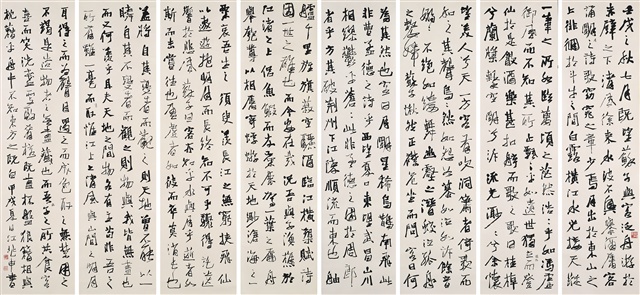 壬戌之秋七月既望蘇子與客泛舟遊於
赤壁之下清風徐來水波不興舉酒屬客
誦明月之詩歌窈窕之章少焉月出於東山之
上徘徊於斗牛之間白露橫江水光接天縱
一葦之所如凌萬頃之茫然浩浩乎如馮虛
御風而不知其所止飄飄乎如遺世獨立羽化而登
仙於是飲酒樂甚扣舷而歌之歌曰桂棹
兮蘭槳擊空明兮泝流光渺渺兮予懷
望美人兮天一方客有吹洞簫者倚歌
而和之其聲嗚嗚然如怨如慕如泣如訴餘音嫋
嫋不絕如縷舞幽壑之潛蛟泣孤舟
之嫠婦蘇子愀然正襟危坐而問客曰何
為其然也客曰月明星稀烏鵲南飛此
非曹孟德之詩乎西望夏口東望武昌山川
相繆鬱乎蒼蒼此非孟德之困於周郎
者乎方其破荊州下江陵順流而東也舳
艫千里旌旗蔽空釃酒臨江橫槊賦詩
固一世之雄也而今安在哉況吾與子漁樵於
江渚之上侶魚蝦而友麋鹿駕一葉之扁舟
舉匏樽以相屬寄蜉蝣於天地渺滄海之一
粟哀吾生之須臾羨長江之無窮挾飛仙
以遨遊抱明月而長終知不可乎驟得託遺
響於悲風蘇子曰客亦知夫水與月乎逝者如
斯而未嘗往也盈虛者如彼而卒莫消長也
蓋將自其變者而觀之則天地曾不能以一
瞬自其不變者而觀之則物與我皆無盡也
而又何羨乎且夫天地之間物各有主苟非吾之
所有雖一毫而莫取惟江上之清風與山間之明月
耳得之而為聲目遇之而成色取之無禁用之
不竭是造物者之無盡藏也而吾與子之所共食客
喜而笑洗盞更酌肴核既盡杯盤狼藉相與
枕藉乎舟中不知東方之既白 甲戌夏日